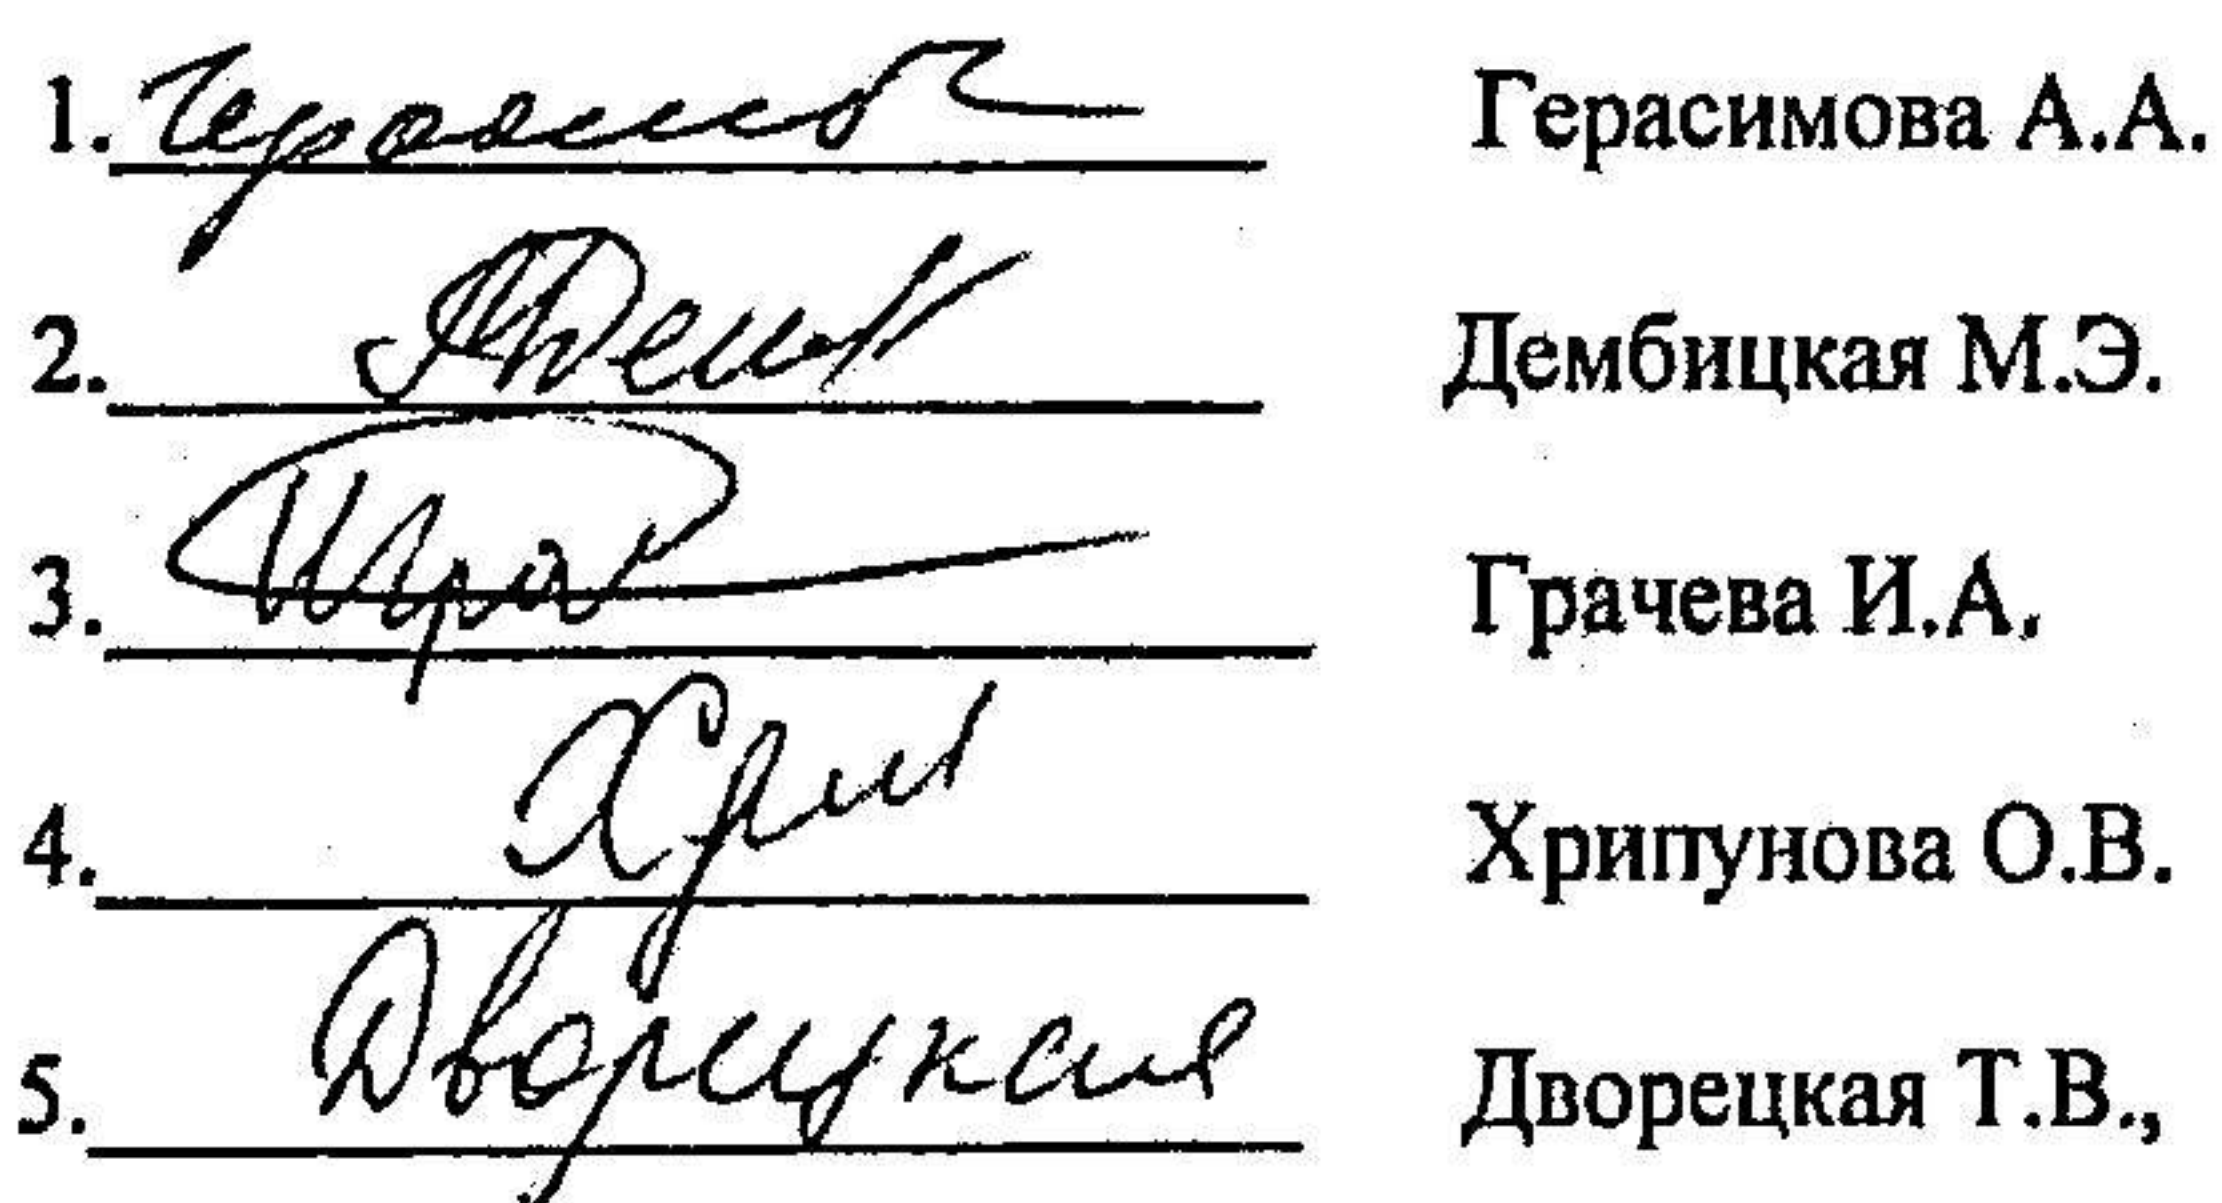 1. Герасимова А.А.
2. Дембицкая М.Э.
3. Грачева И.А.
4. Хрипунова О.В.
5. Дворецкая Дворецкая Т.В.,